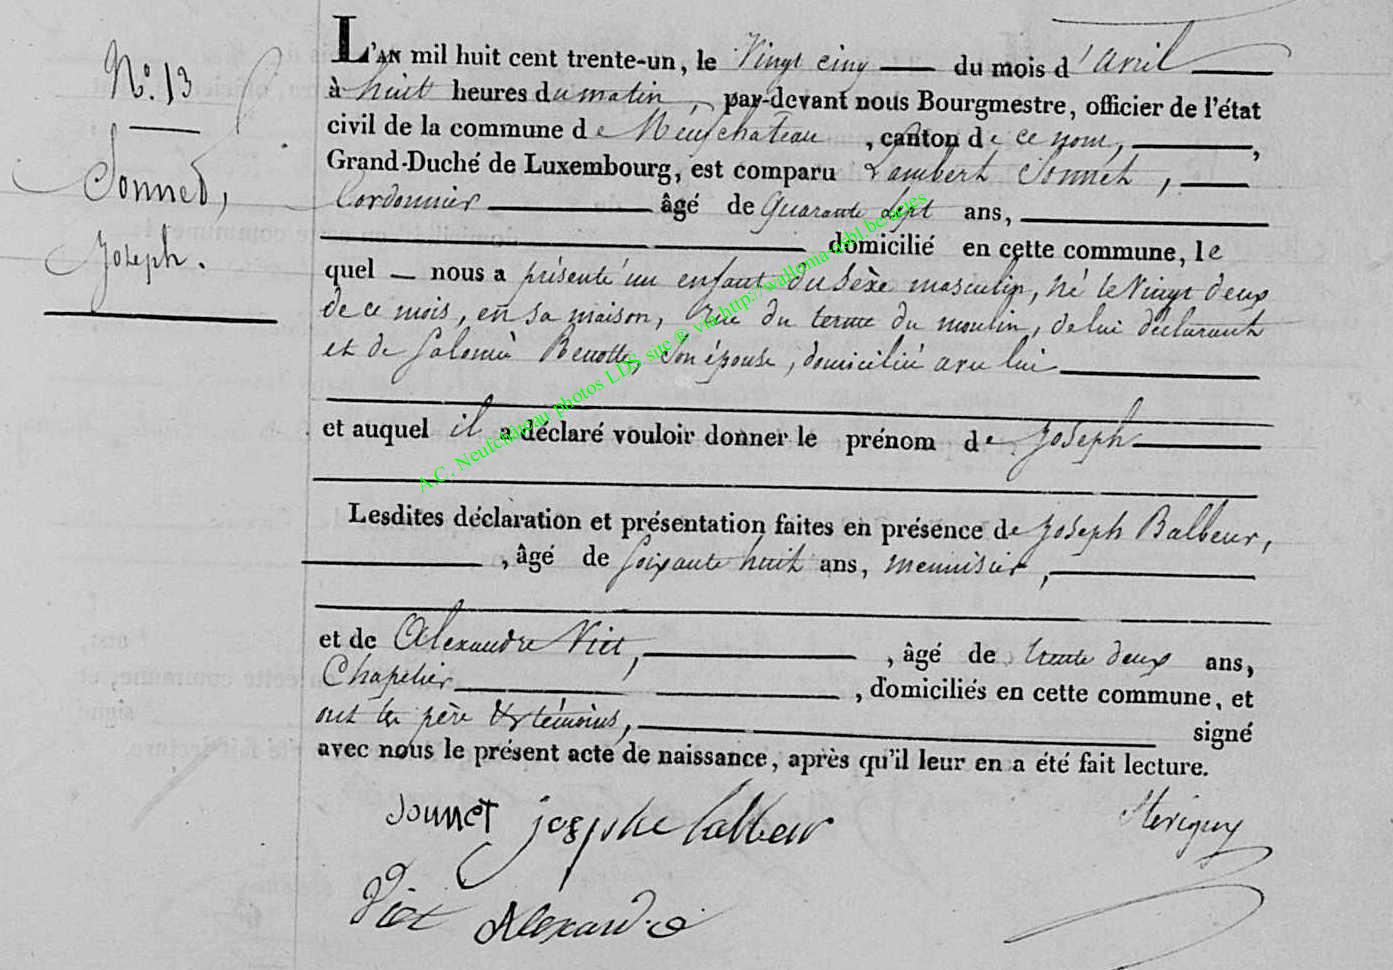 N.° 13
Sonnet,
Joseph.
L'AN mil huit cent trente-un, le Vingt cinq du mois d'avril
à huit heures du matin, par-devant nous Bourgmestre, officier de l'état
civil de la commune de Neufchateau, canton de ce nom,
Grand-Duché de Luxembourg, est comparu Lambert Sonnet,
Cordonnier âgé de Quarante Sept ans,
domicilié en cette commune, le
quel nous a présenté un enfant du Sèxe masculin, né le Vingt deux
de ce mois, en sa maison, rue du du moulin, de lui déclarant
et de Salomé Benotte, Son épouse, domiciliée avec lui
et auquel il a déclaré vouloir donner le prénom de Joseph
Lesdites déclaration et présentation faites en présence de Joseph Balbeur,
, âgé de Soixante huit ans, menuisier,
et de Alexandre Viot, , âgé de trente deux ans,
Chapelier , domiciliés en cette commune, et
ont les père & témoins, signé
avec nous le présent acte de naissance, après qu'il leur en a été fait lecture.
Sonnet josephe balbeur
Viot Alexandre
A.C. Neufchâteau photos LDS site ® via http://wallonia-asbl.be/actes